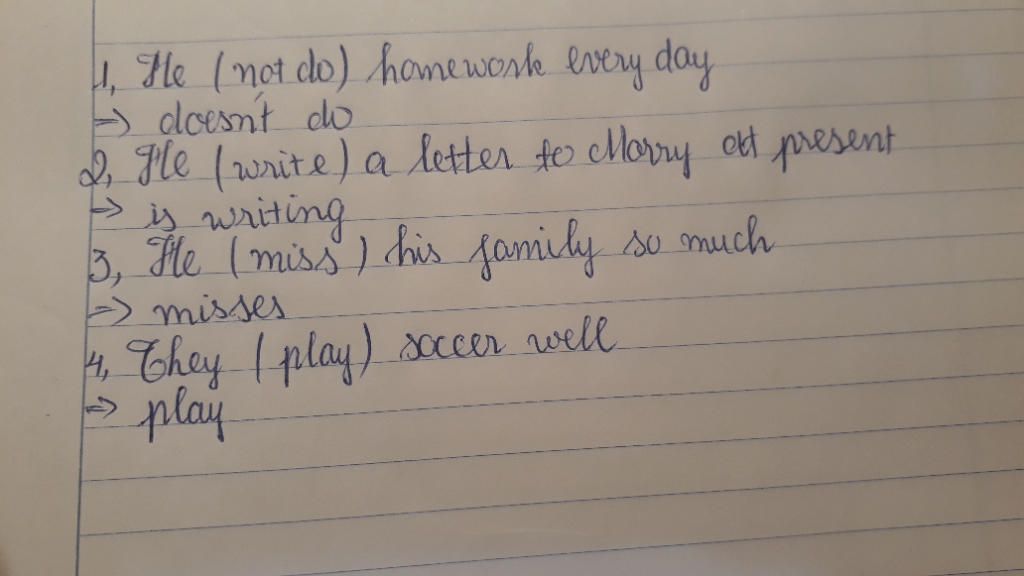 1, He (not do) homework every day
=> doesn't do
2, He (write) a letter to Marry at present
=> is writing
3, He (miss) his family so much
=> misses
4, They (play) soccer well
=> play